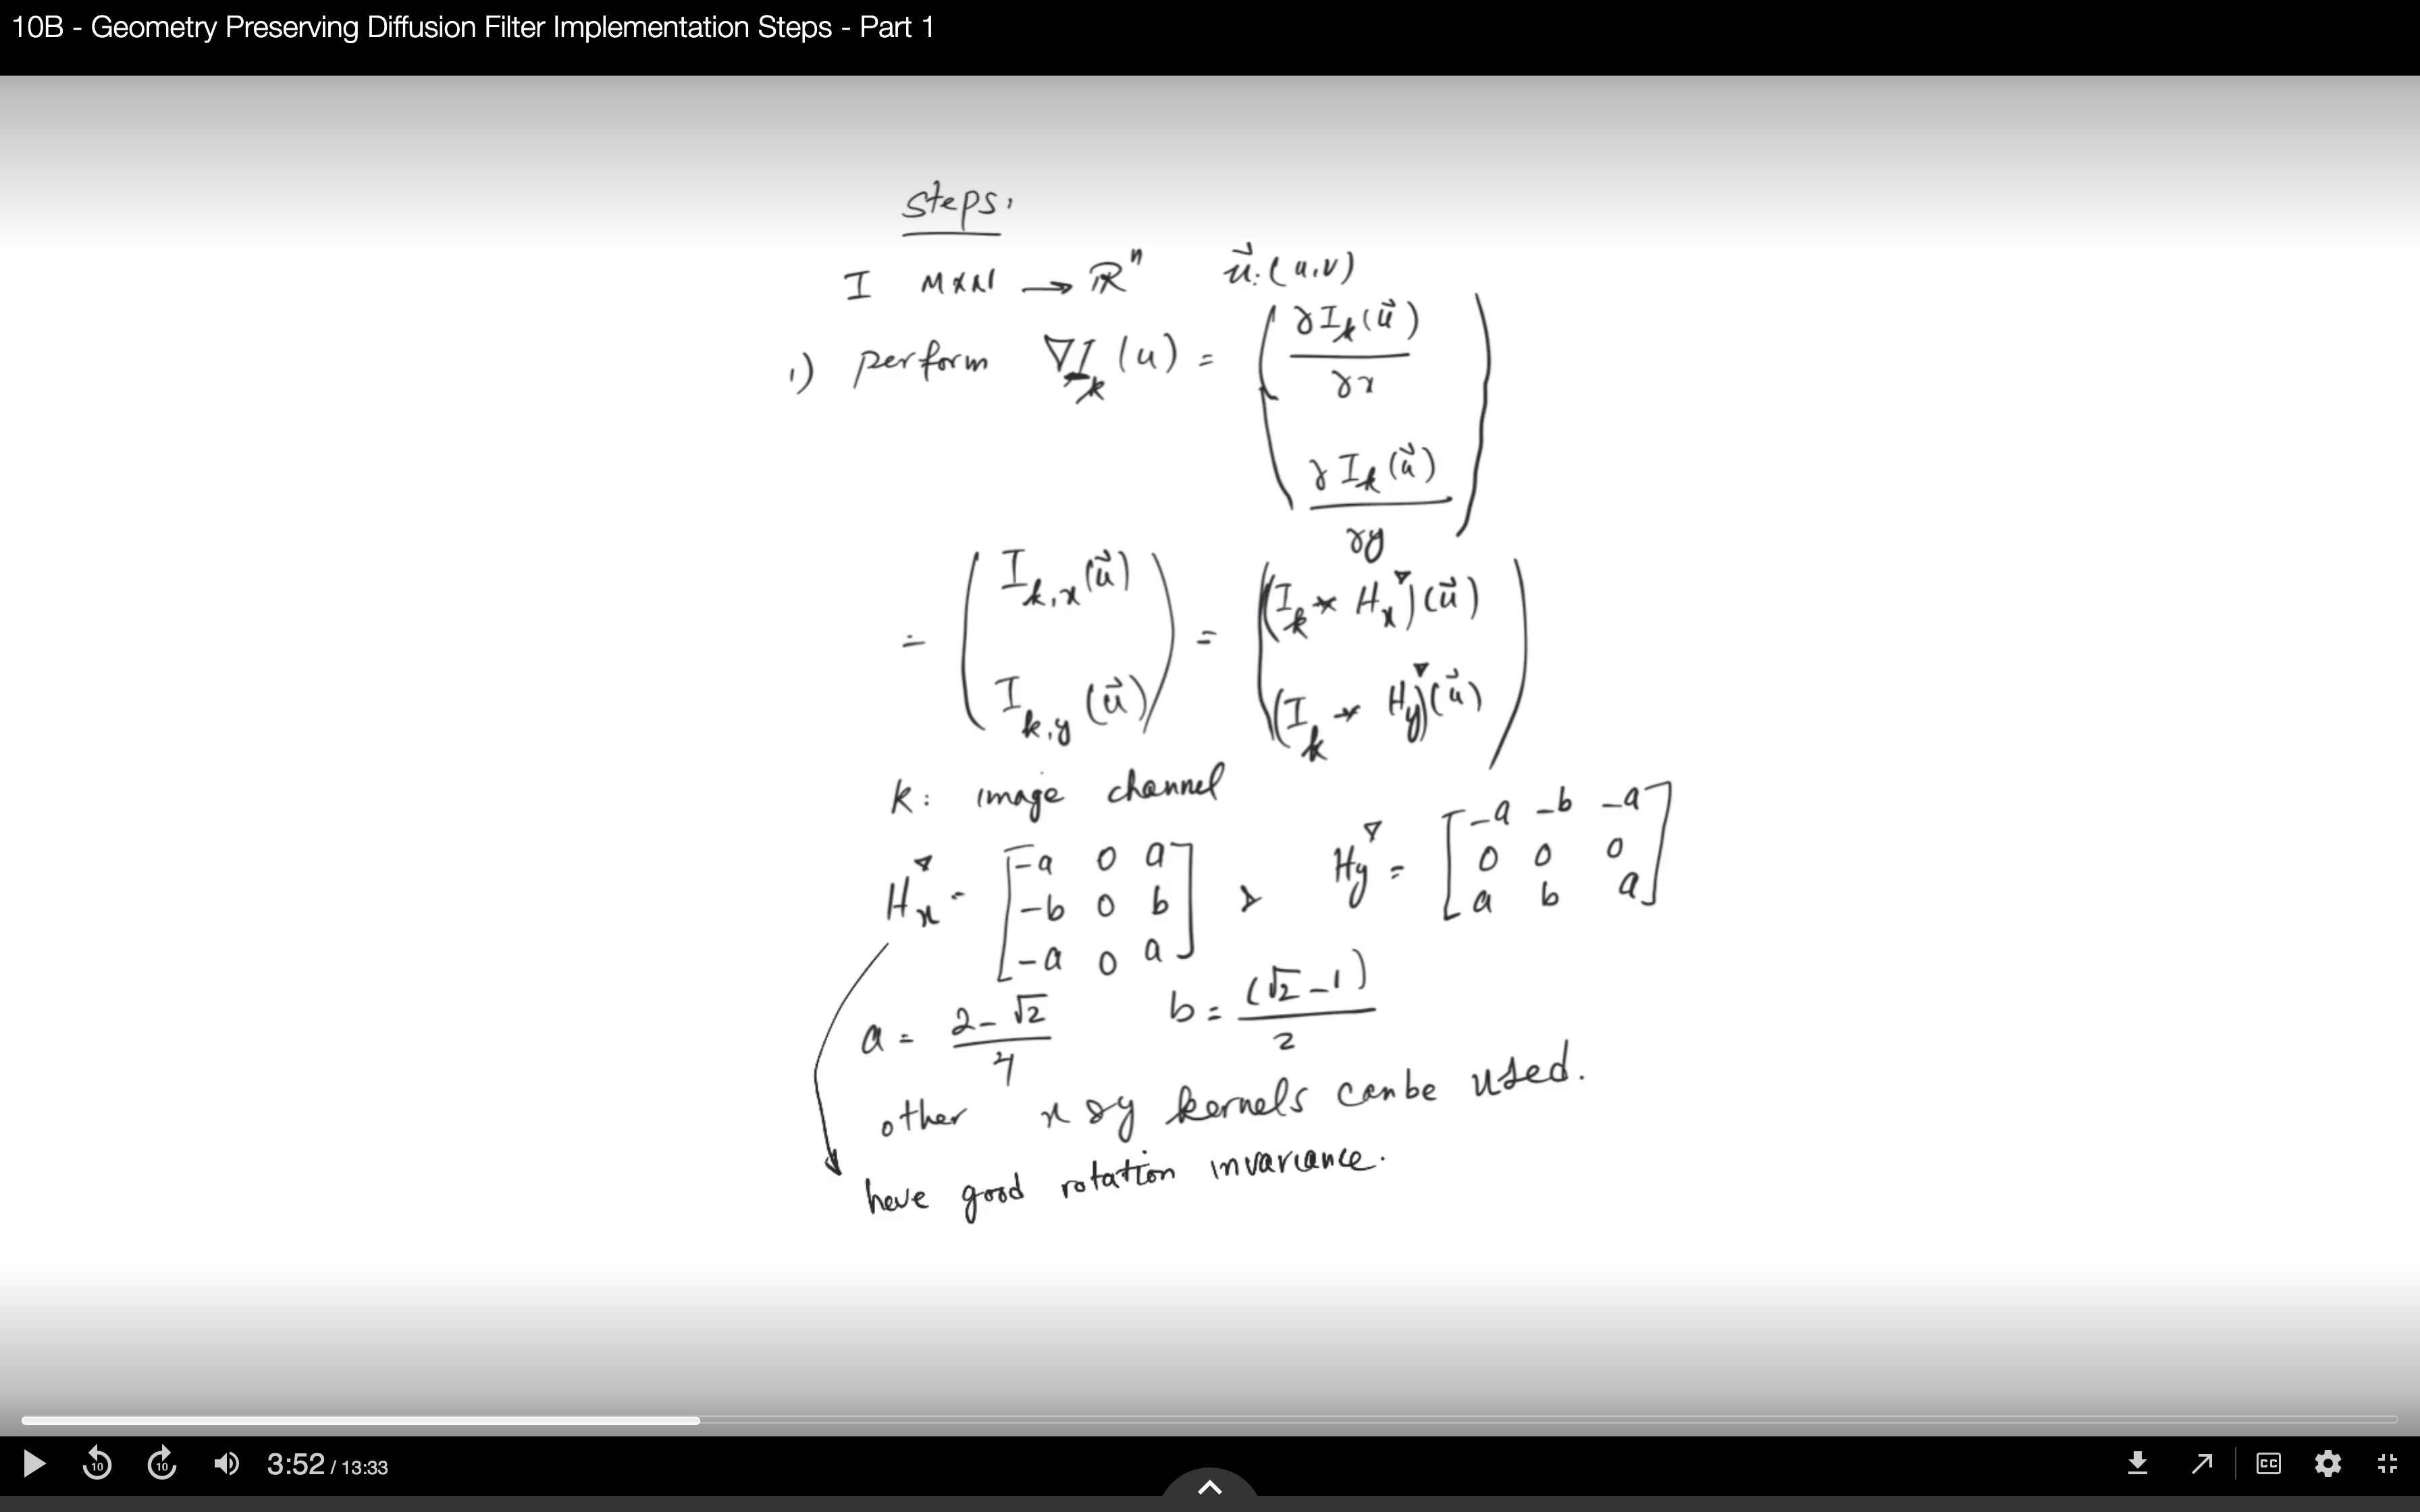 10B - Geometry Preserving Diffusion Filter Implementation Steps - Part 1
Steps:
I M×N → ℝⁿ u⃗: (u,v)
1) perform ∇I_k (u) = ( ∂I_k(u⃗) / ∂x
∂I_k(u⃗) / ∂y )
= ( I_k,x(u⃗) ) = ( (I_k * H_x^∇)(u⃗) )
( I_k,y(u⃗) ) ( (I_k * H_y^∇)(u⃗) )
k: image channel
H_x^∇ = [ -a 0 a
-b 0 b
-a 0 a ] & H_y^∇ = [ -a -b -a
0 0 0
a b a ]
a = (2-√2)/4 b = (√2-1)/2
other x & y kernels can be used.
have good rotation invariance.
10 10 3:52 / 13:33 CC